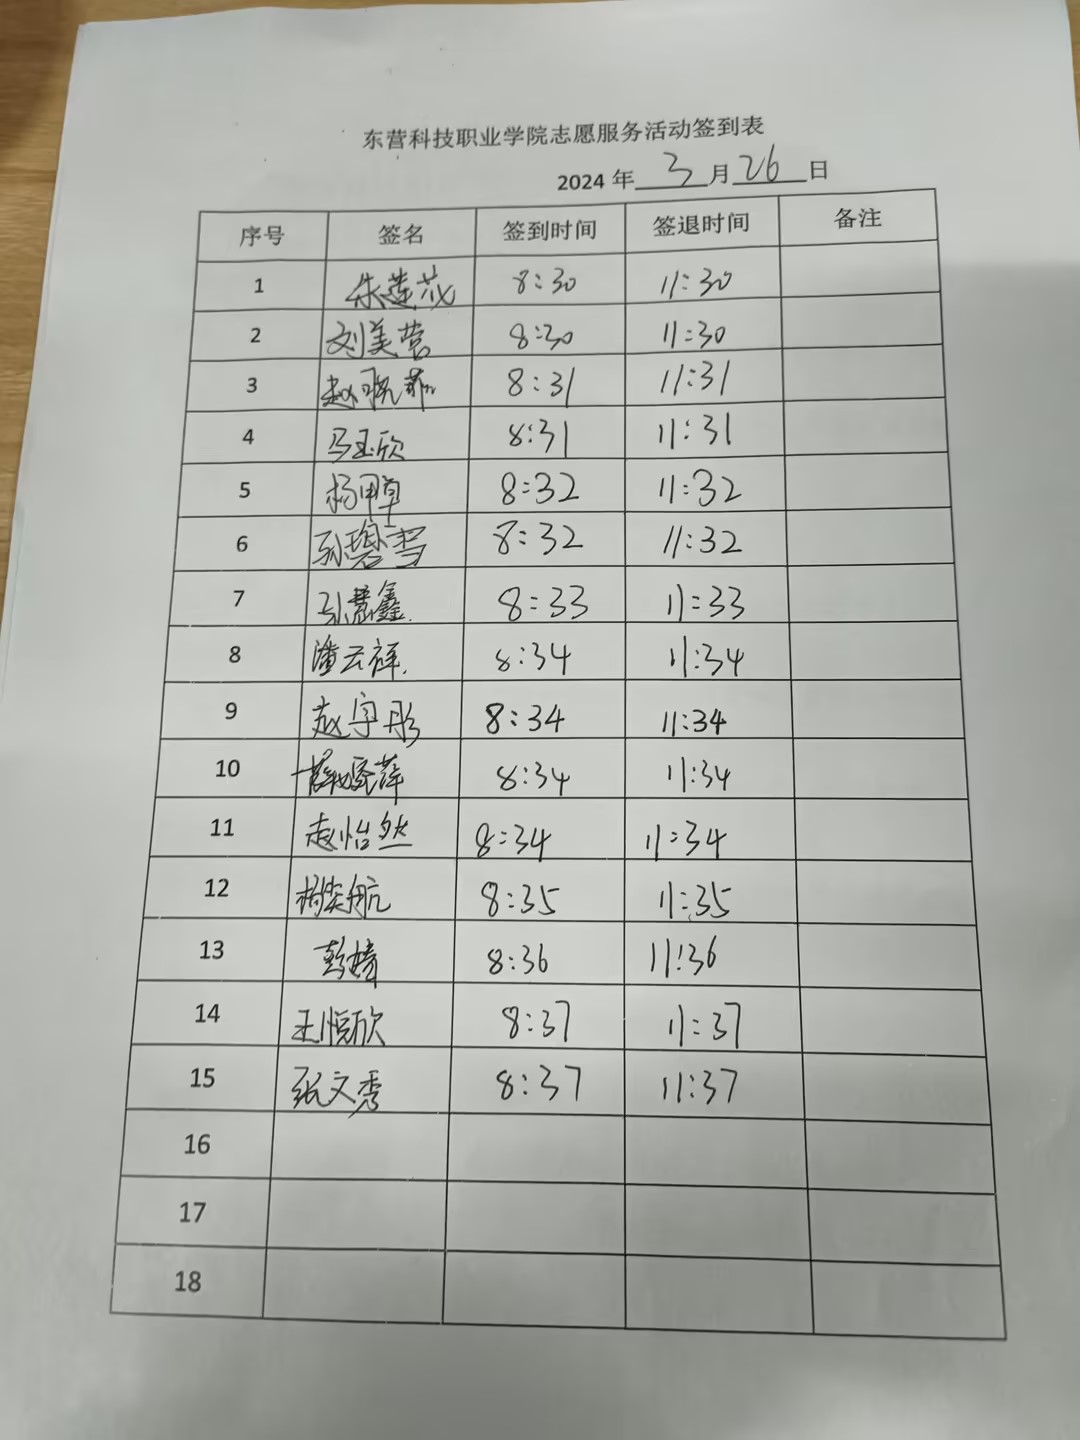 东营科技职业学院志愿服务活动签到表
2024 年 3 月 26 日
序号 签名 签到时间 签退时间 备注
1 朱莲 8:30 11:30
2 刘美营 8:30 11:30
3 赵晓菲 8:31 11:31
4 马玉欣 8:31 11:31
5 杨 8:32 11:32
6 孙碧雪 8:32 11:32
7 慧鑫 8:33 11:33
8 潘云祥 8:34 11:34
9 赵宇彤 8:34 11:34
10 薛晓萍 8:34 11:34
11 赵怡然 8:34 11:34
12 杨奕航 8:35 11:35
13 彭婧 8:36 11:36
14 王恒欣 8:37 11:37
15 张文秀 8:37 11:37
16
17
18